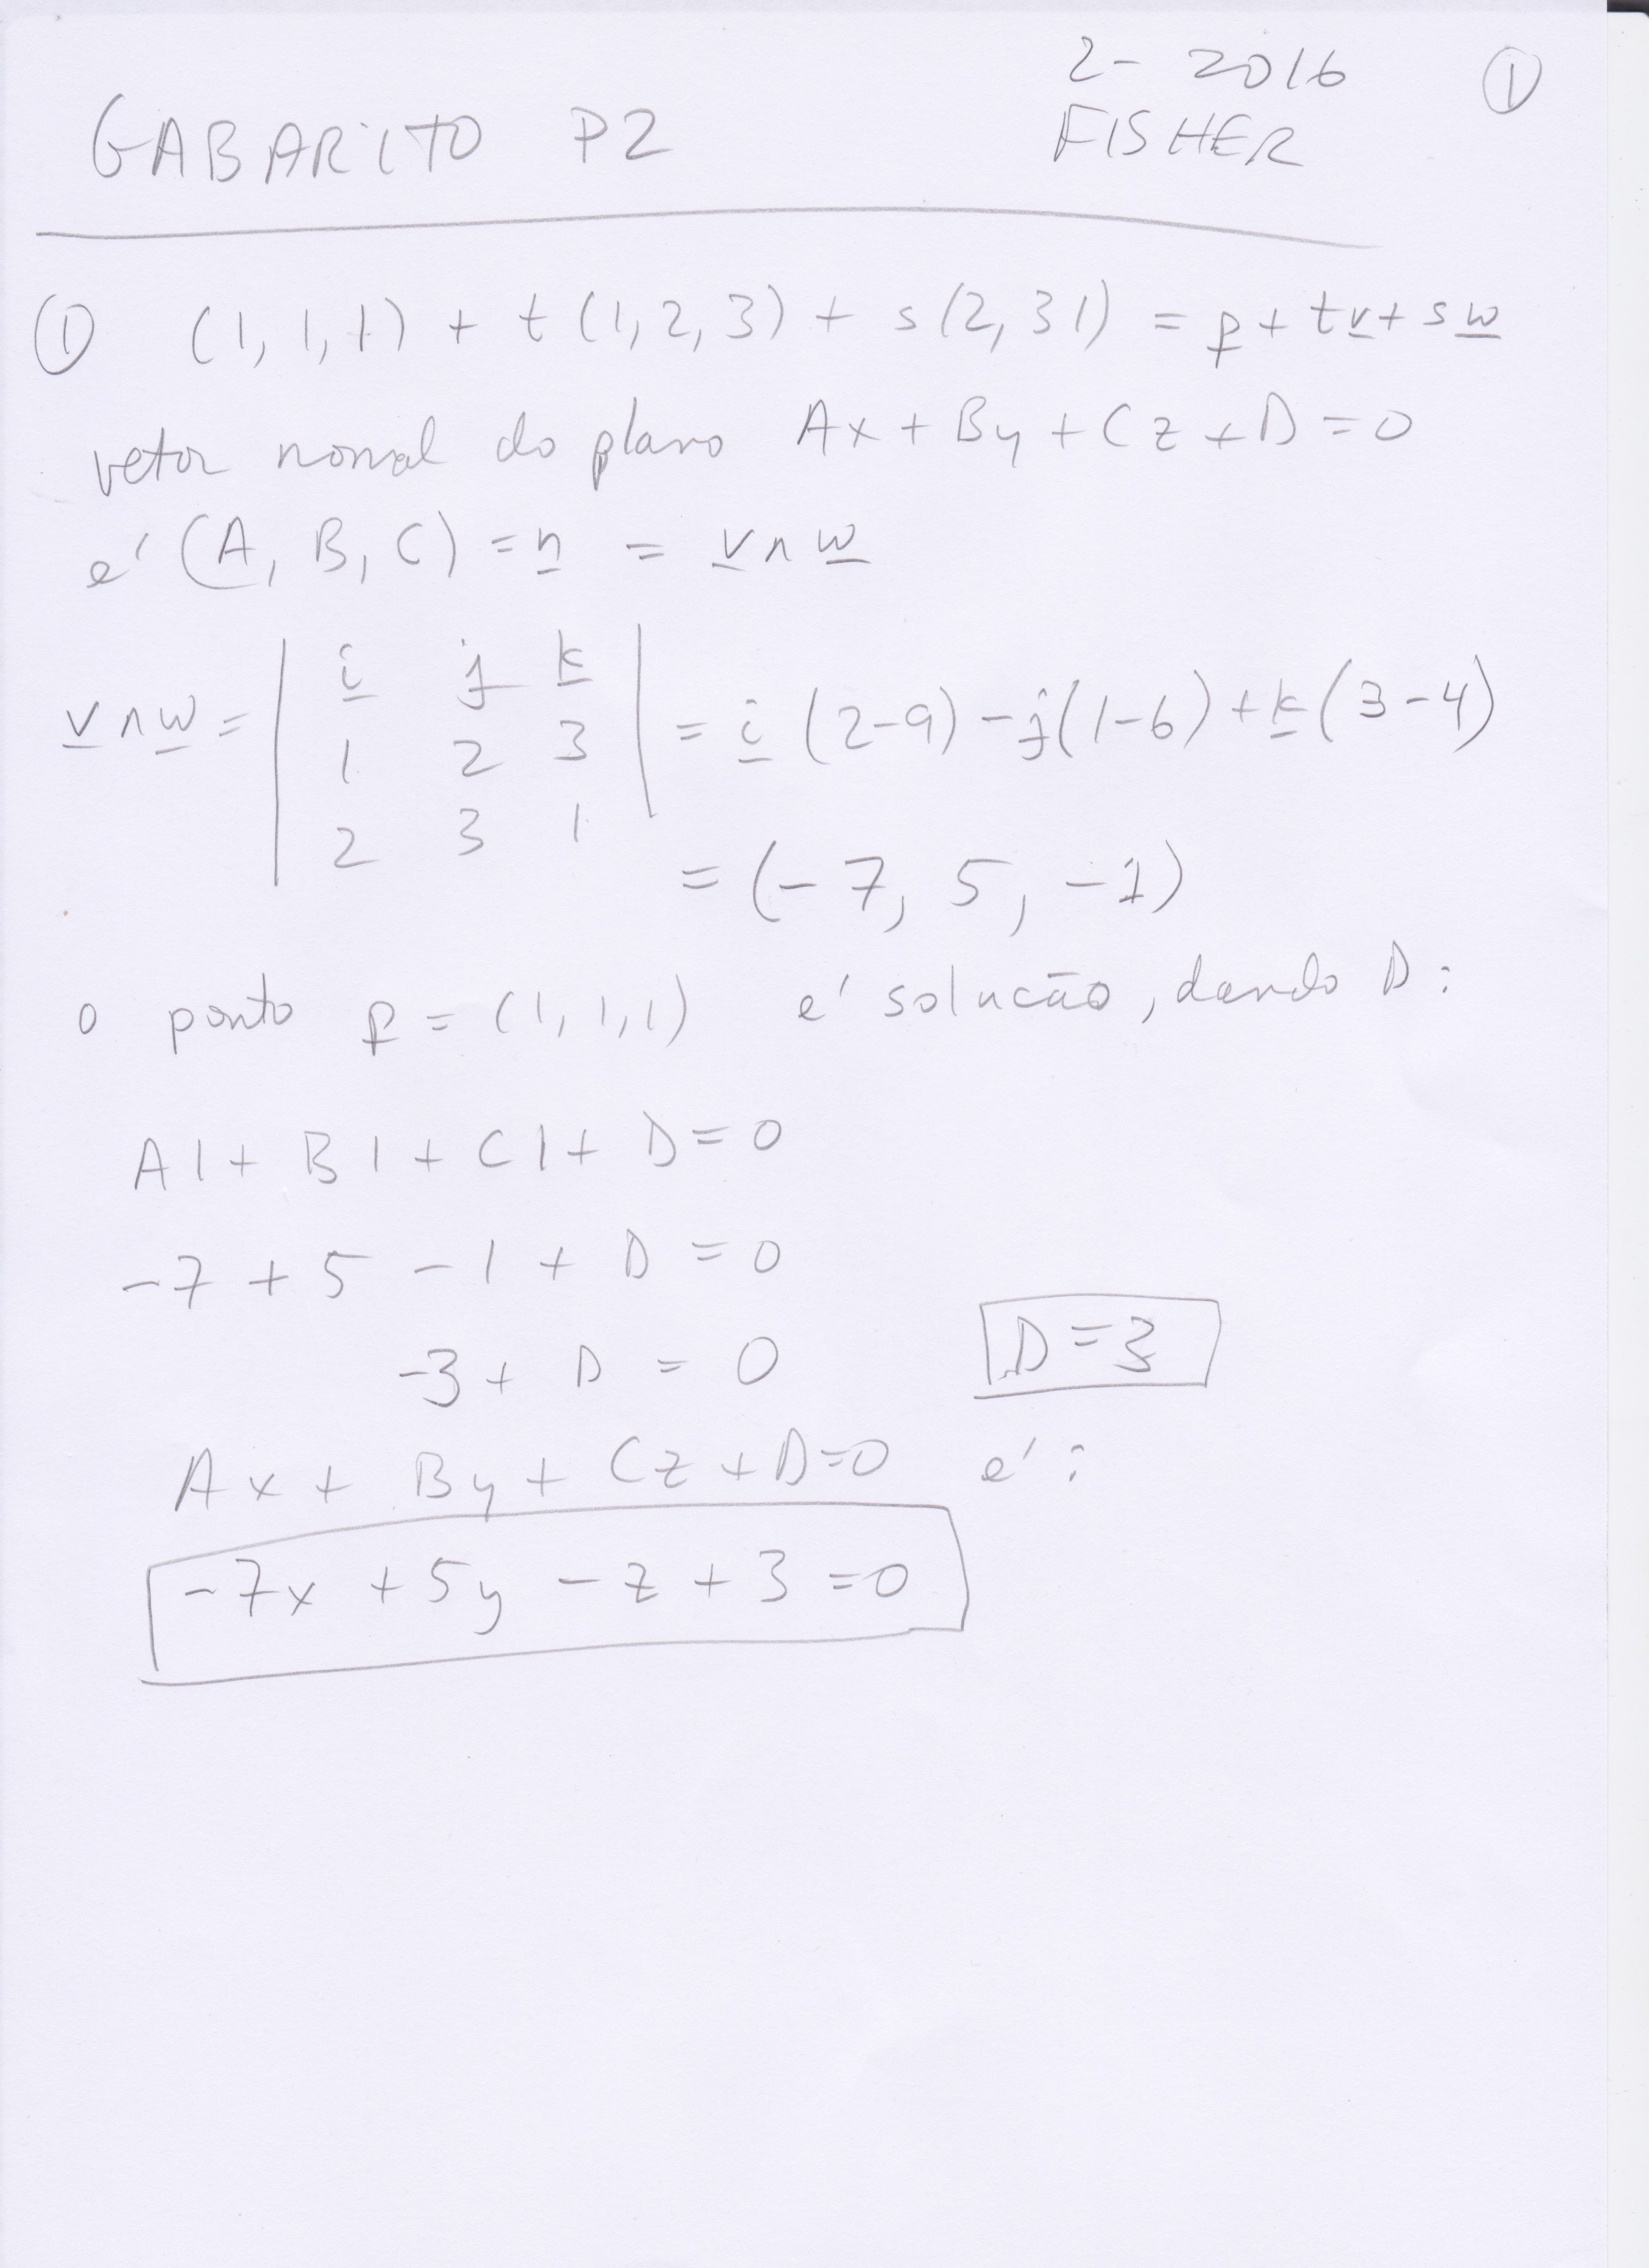 2- 2016 ①
GABARITO P2 FISHER
① (1,1,1) + t(1,2,3) + s(2,31) = p + tv + sw
vetor normal do plano Ax + By + Cz + D = 0
e' (A, B, C) = n = v ∧ w
v ∧ w = | i j k | = i (2-9) - j(1-6) + k(3-4)
1 2 3
2 3 1
= (-7, 5, -1)
o ponto p = (1,1,1) e' solucão, dando D:
A1 + B1 + C1 + D = 0
-7 + 5 - 1 + D = 0
-3 + D = 0 D = 3
Ax + By + Cz + D = 0 e':
-7x + 5y - z + 3 = 0